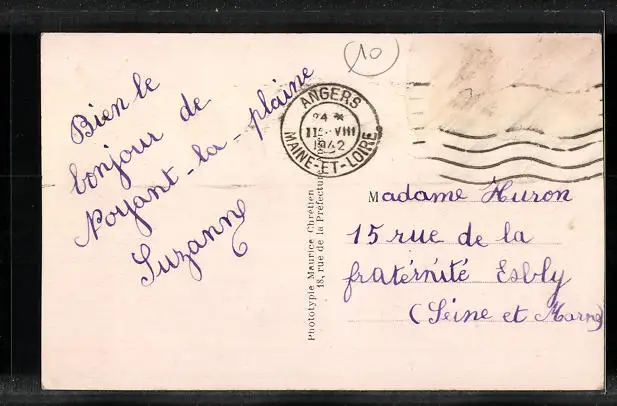 10
Bien le
bonjour de
Noyant-la-plaine
Suzanne
ANGERS
VIII
1942
MAINE-ET-LOIRE
Phototypie Maurice Chrétien
18, rue de la Préfecture
Madame Huron
15 rue de la
fratérnité Esbly
(Seine et Marne)